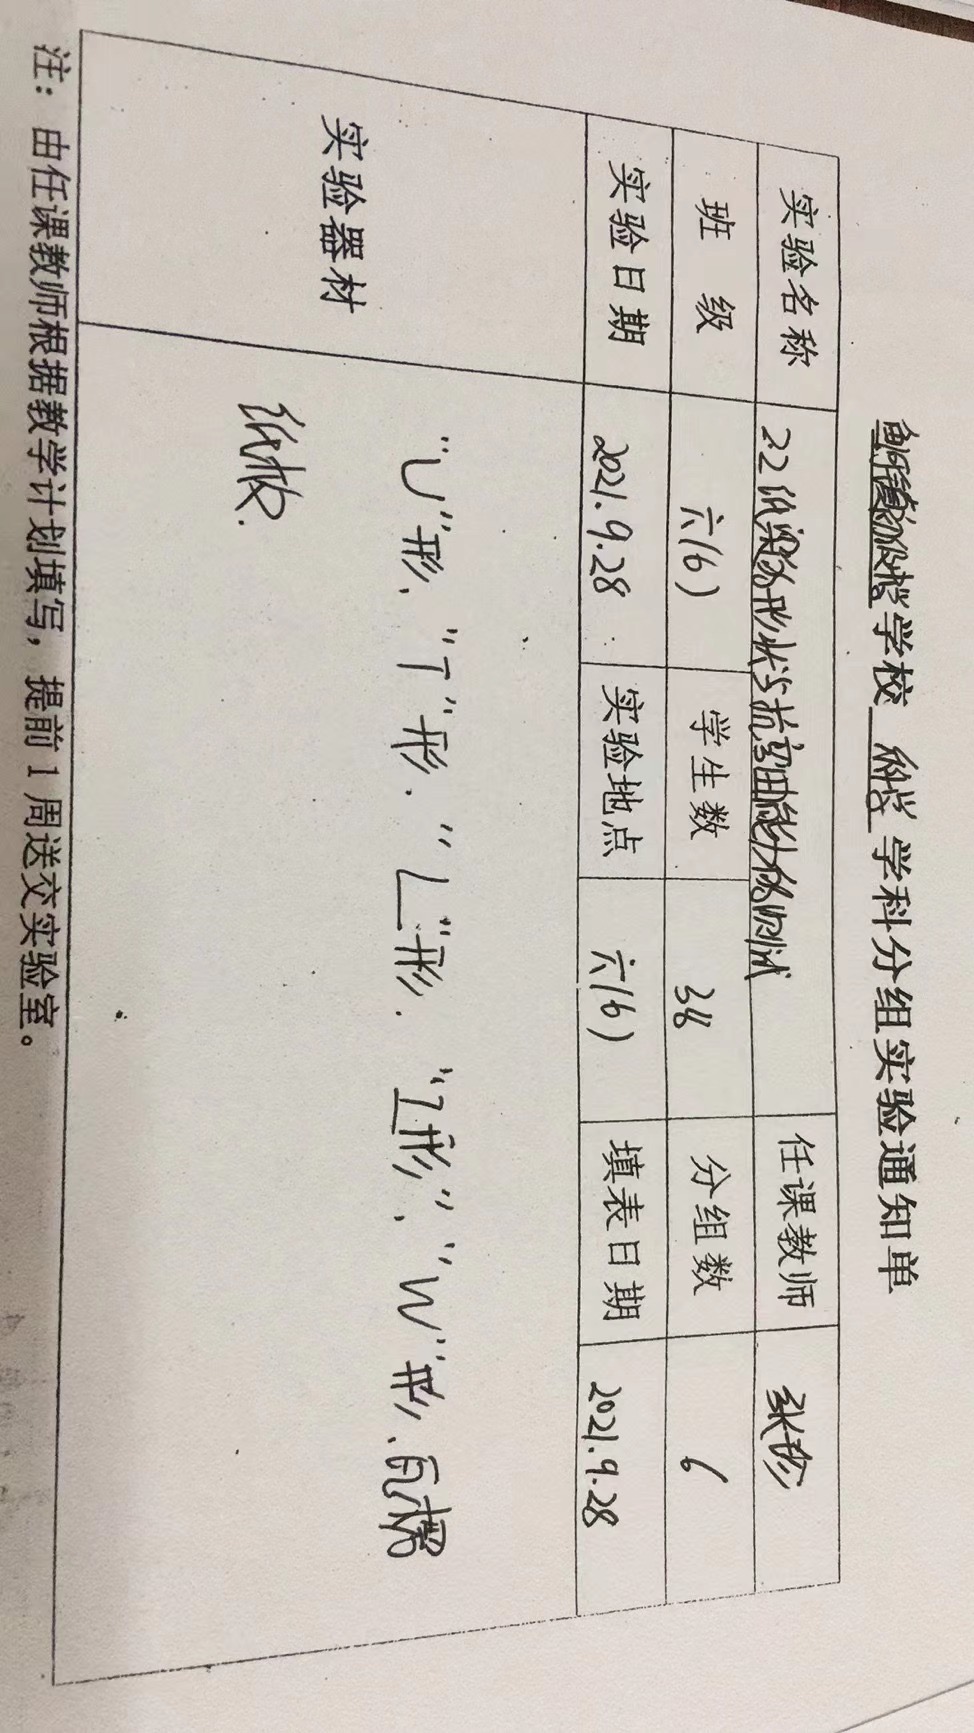 学校 科学 学科分组实验通知单
实验名称 2.2 纸梁的形状与抗弯曲能力的测试 任课教师 张珍
班 级 六(6) 学生数 38 分组数 6
实验日期 2021.9.28 实验地点 六(6) 填表日期 2021.9.28
实验器材 "U"形、"T"形、"L"形、"工形"、"W"形、瓦楞
纸板.
注：由任课教师根据教学计划填写，提前1周送交实验室。